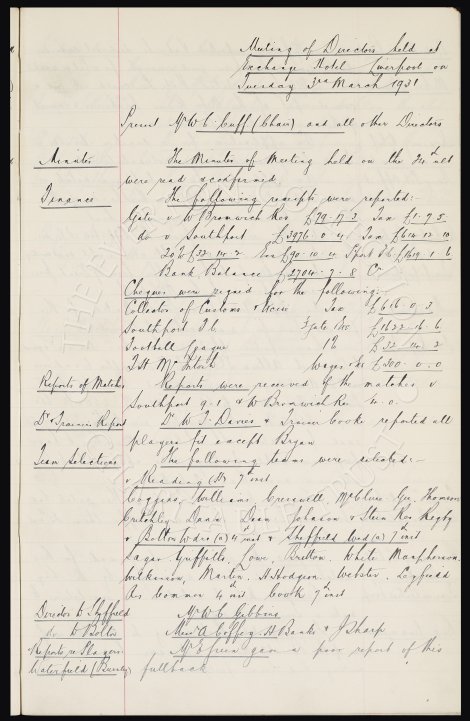 Meeting of Directors held at
Exchange Hotel Liverpool on
Tuesday 3rd March 1931
Present Mr W C Cuff (Chair) and all other Directors
Minutes
The Minutes of Meeting held on the 24th ult
were read & confirmed
Finance
The following receipts were reported:-
Gate v W Bromwich Res £79.17.3 Tax £1.9.5
do v Southport £3976.0.4 Tax £614.12.10
£32.14.2 £90.10.4 Sport F.C. £1619.1.6
Bank Balance £2704.7.8 Cr
Cheques were signed for the following:-
Collector of Customs & Excise Tax £616.0.3
Southport F.C. Gate £1622.6.6
Football League 1% £32.14.2
Wages £300.0.0
Reports of Matches
Reports were received of the matches v
Southport 9-1 & W Bromwich Res 4.0.
Dr & Trainers Report
Dr W J Davies & Trainer Cooke reported all
players fit except Bryan
Team Selections
The following teams were selected:-
v Reading (H) 7th inst
Coggins, Williams, Cresswell, McClure Gee, Thomson
Critchley Dunn, Dean Johnson & Stein Res Rigby
v Bolton Wdrs (a) 4 inst & Sheffield Wed (a) 7th inst
Sagar Griffiths, Lowe, Britton, White Macpherson
Wilkinson, Martin, A Hodgson, Webster,
Res Bonner 4 inst Cook 7th inst
Director to Sheffield
Mr W C Gibbins
do to Bolton
Mess A Coffey, A Banks & J Sharp
Reports re Players
Waterfield (Burnley)
Mr E Green gave a poor report of this
fullback